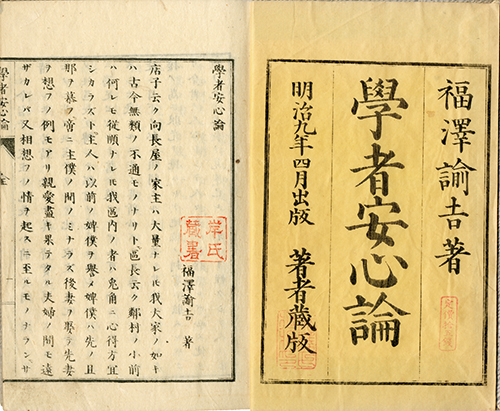 福澤諭吉著
學者安心論
明治九年四月出版 著者藏版
學者安心論
福澤諭吉 著
店子云ク向長屋ノ家主ハ大量ナレ𪜈我大家ノ如キ
ハ古今無類ノ不通モノナリト區長云ク鄰村ノ小前
ハ何レモ從順ナレ𪜈我區内ノ者ハ兎角ニ心得方宜
シカラズト主人ハ以前ノ婢僕ヲ譽メ婢僕ハ先ノ且
那ヲ慕フ啻ニ主僕ノ間ノミナラズ後妻ヲ娶テ先妻
ヲ想フノ例モアリ親愛盡キ果テタル夫婦ノ間モ遠
ザカレバ又相想フノ情ヲ起スニ至ルモノナランサ
學者安心論